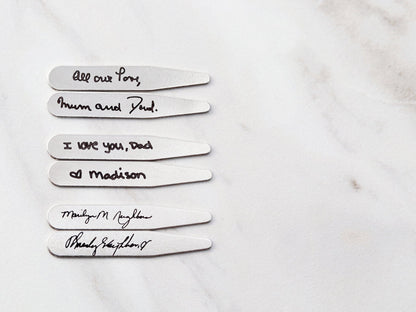 All our Love,
Mum and Dad.
I love you, Dad
♡ madison
Marilyn M